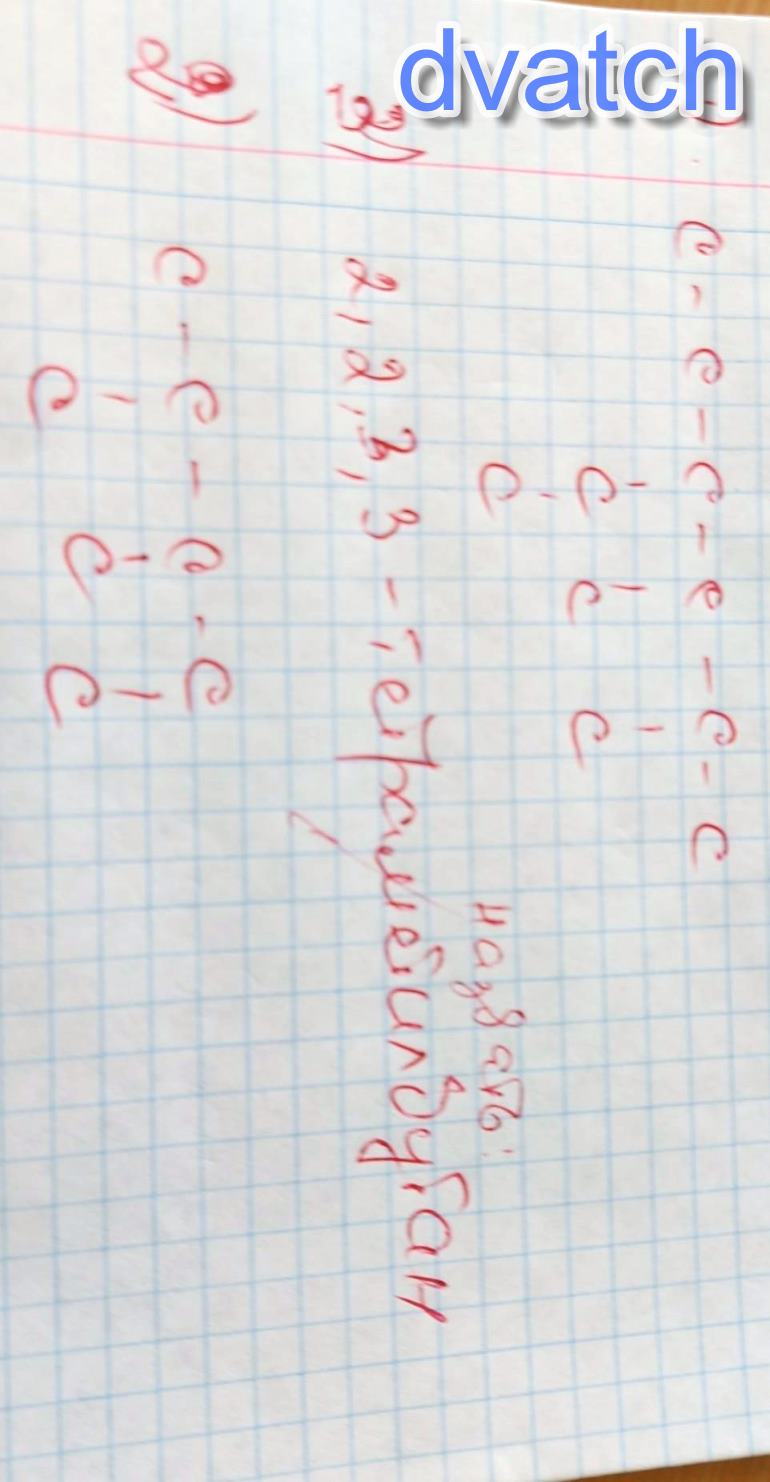 dvatch
)
C - C - C - C - C - C
C C C
C
назвать:
3) 2,2,3,3 - тетраметилбутан
2) C - C - C - C
C C C